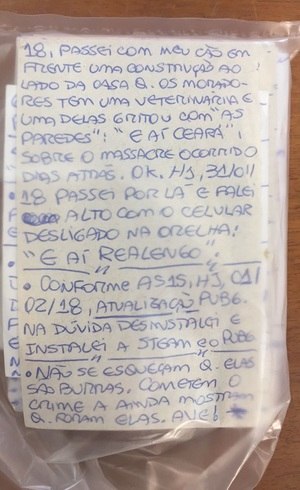 18, PASSEI COM MEU CÃO EM
FRENTE UMA CONSTRUÇÃO AO
LADO DA CASA Q. OS MORADO-
RES TEM UMA VETERINARIA E
UMA DELAS GRITOU COM "AS
PAREDES": "E AÍ CEARÁ";
SOBRE O MASSACRE OCORRIDO
DIAS ATRÁS. OK. HJ, 31/01/
18 PASSEI POR LÁ E FALEI
ALTO COM O CELULAR
DESLIGADO NA ORELHA:
"E AÍ REALENGO".
• CONFORME AS 15, HJ, 01/
02/18, ATUALIZAÇÃO PUBG.
NA DÚVIDA DESINSTALEI E
INSTALEI A STEAM E O PUBG
• NÃO SE ESQUEÇAM Q. ELAS
SÃO BURRAS. COMETEM O
CRIME A AINDA MOSTRAM
Q. FORAM ELAS. AVE!